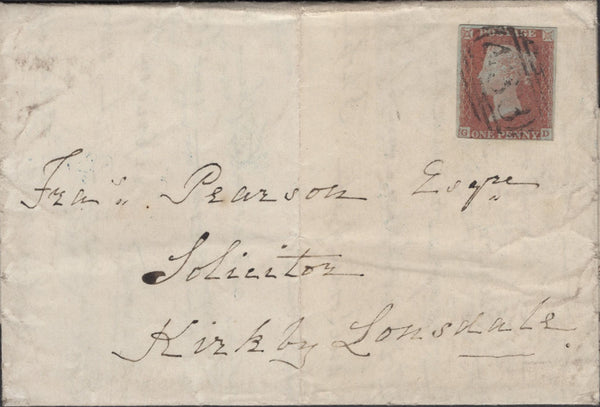 POSTAGE
G D
ONE PENNY
Fras. Pearson Esqre
Solicitor
Kirkby Lonsdale.